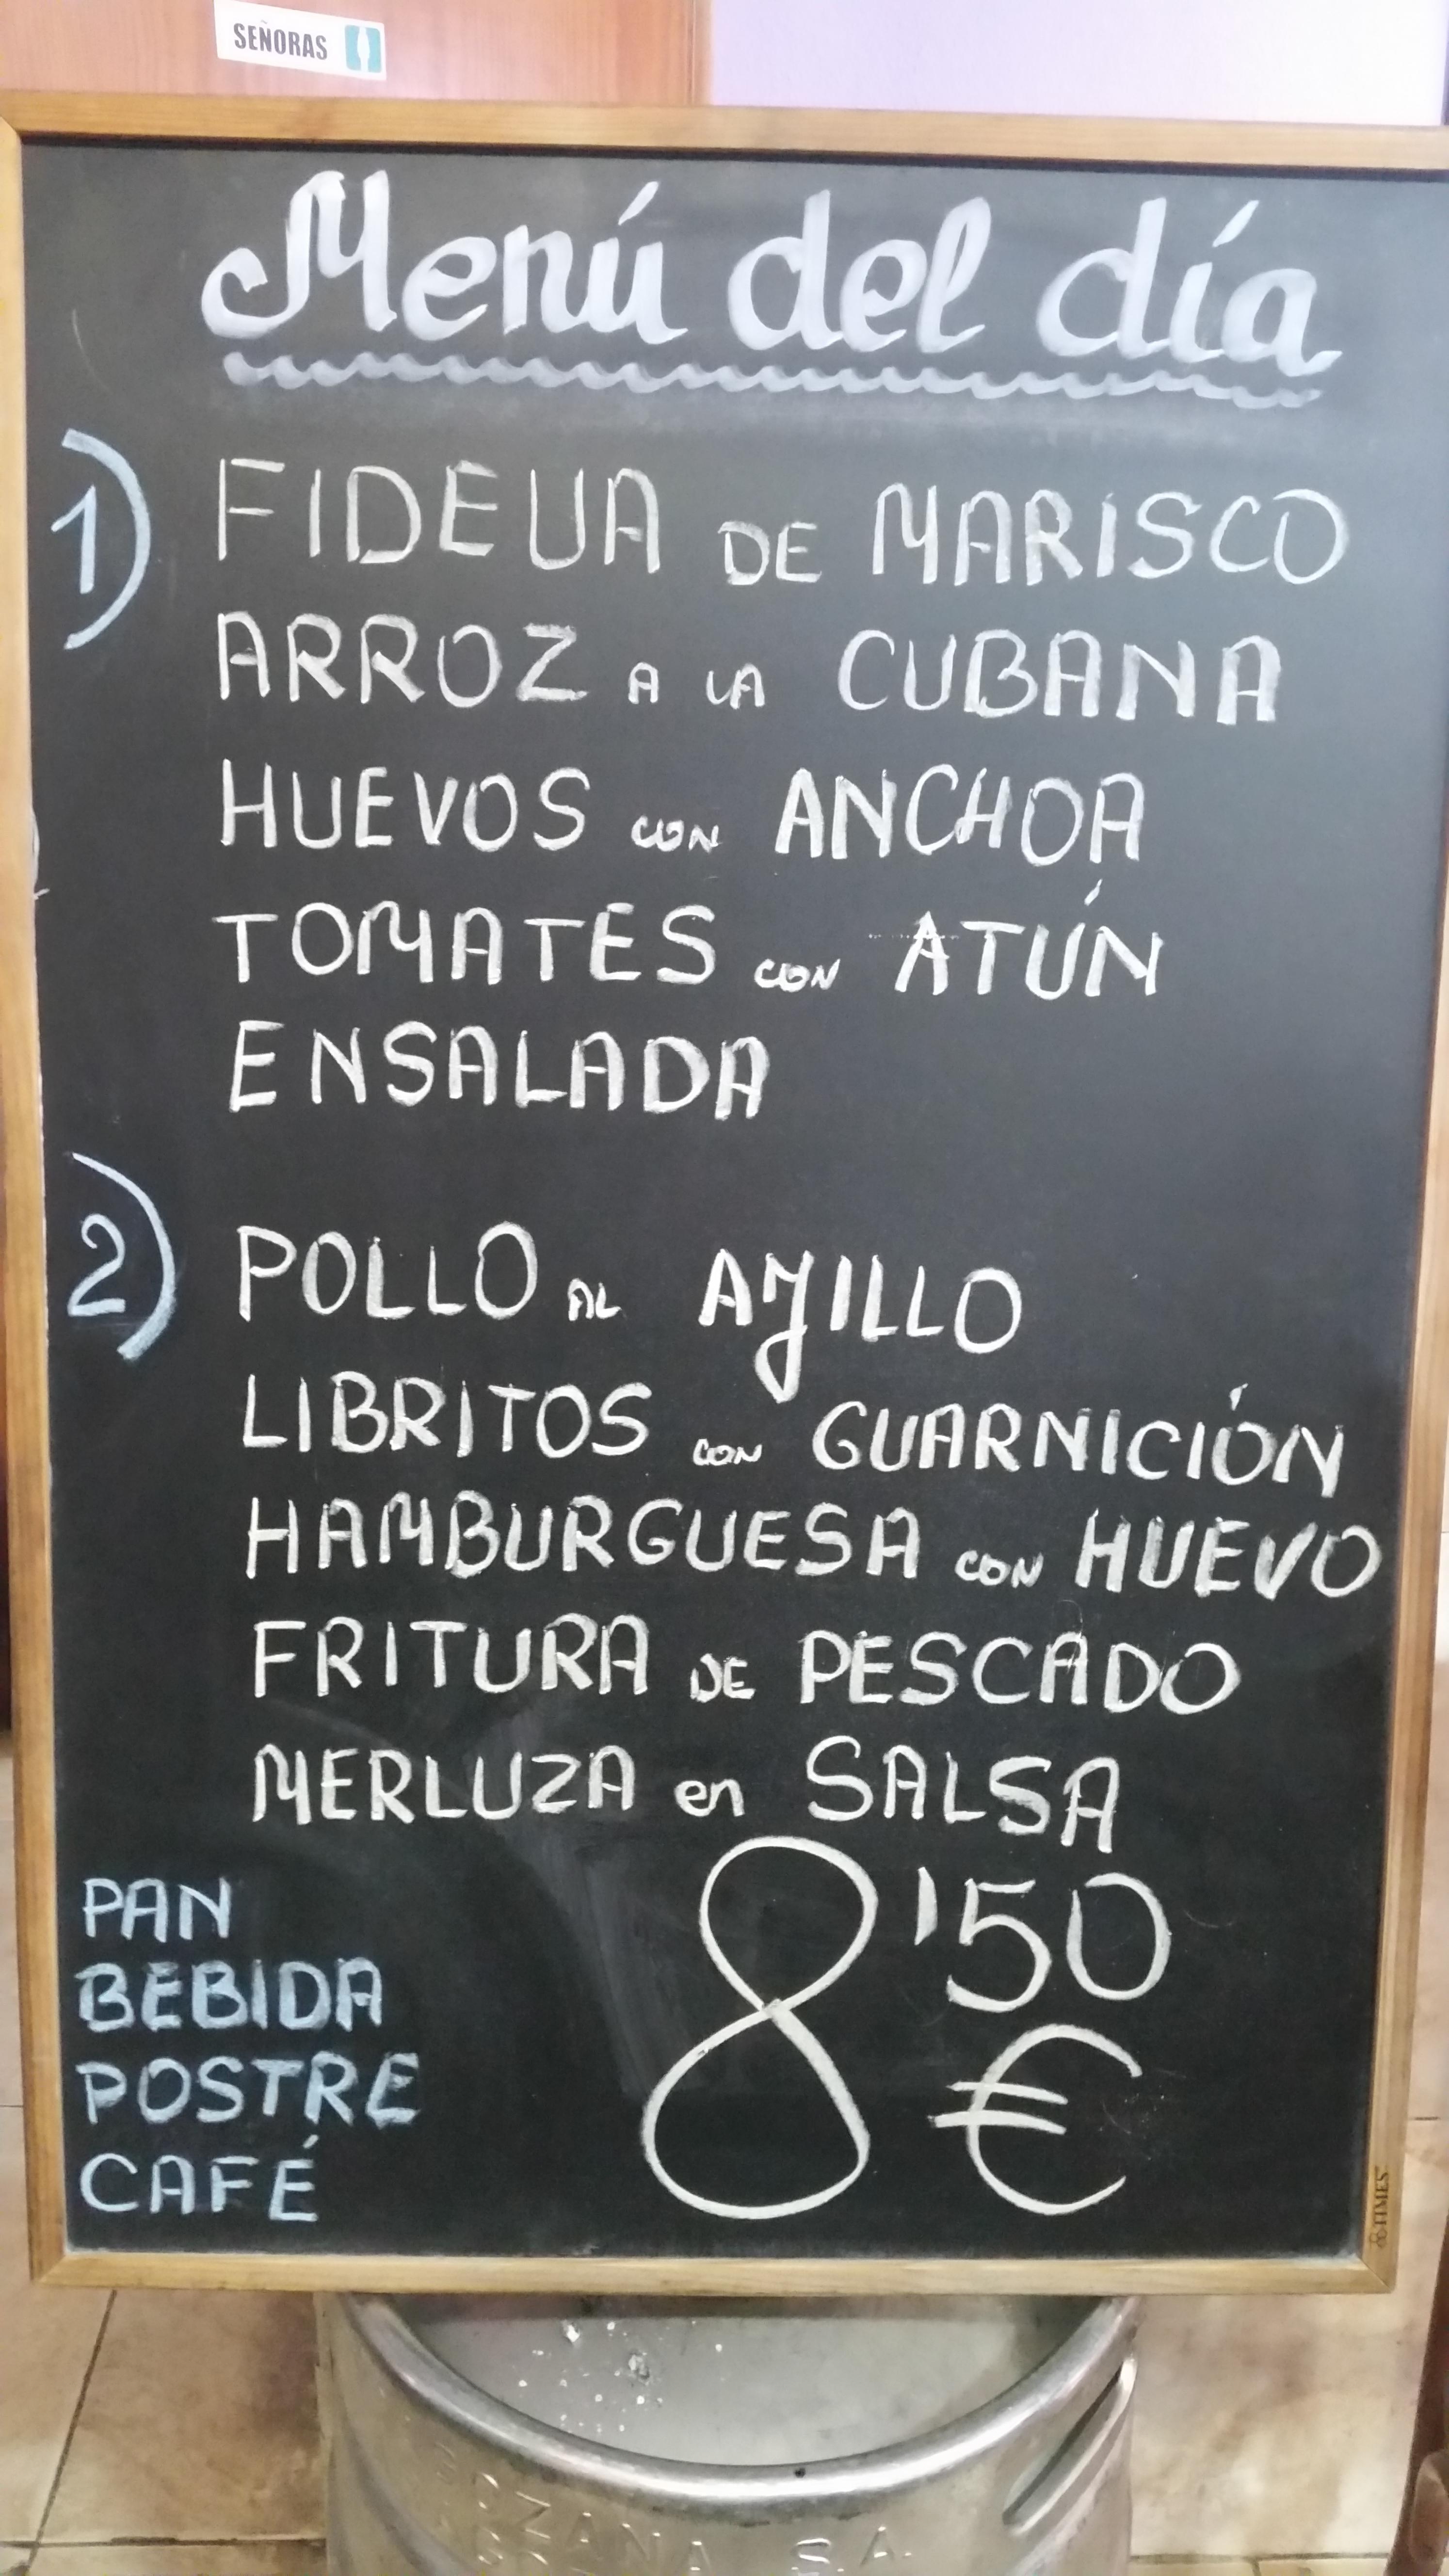 SEÑORAS
Menú del día
1) FIDEUA DE MARISCO
ARROZ A LA CUBANA
HUEVOS CON ANCHOA
TOMATES CON ATÚN
ENSALADA
2) POLLO AL AJILLO
LIBRITOS CON GUARNICIÓN
HAMBURGUESA CON HUEVO
FRITURA DE PESCADO
MERLUZA en SALSA
PAN
BEBIDA
POSTRE
CAFÉ
8'50
€
TIMES
S.A.